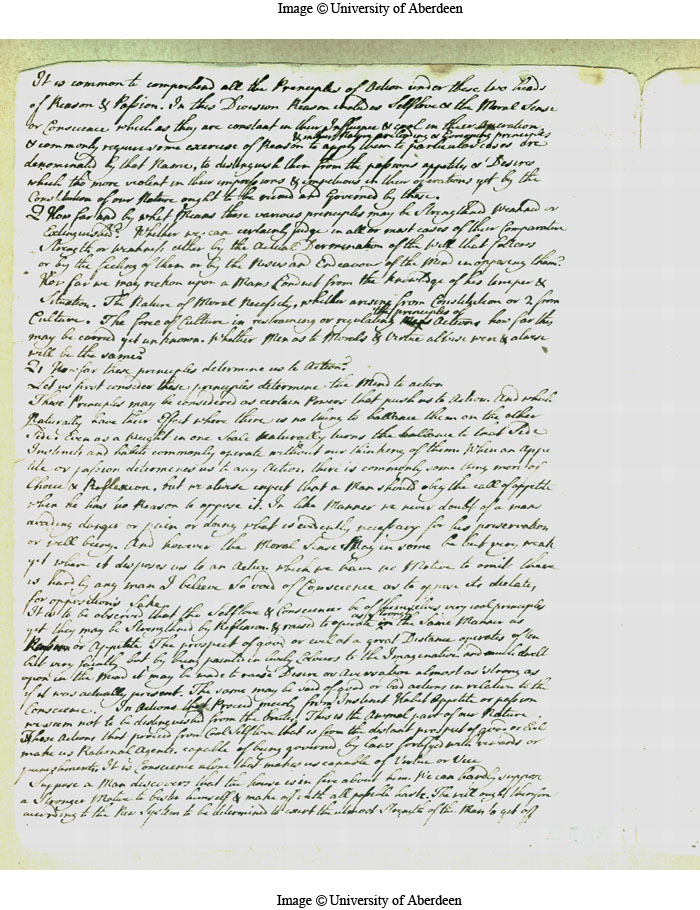 Image © University of Aberdeen
It is common to comprehend all the Principles of Action under these two heads
of Reason & Passion. In this Division Reason includes Selflove & the Moral Sense
or Conscience which as they are constant in their Influence & cool in their Operation
& in their Nature are leading or Governing principles
& commonly require some exercise of Reason to apply them to particular cases are
denominated by that Name, to distinguish them from the passions appetites & Desires
which tho more violent in their impressions & impetuous in their operations yet by the
Constitution of our Nature ought to be reined and Governed by these.
Q How far and by what Means these various principles may be Strengthned Weakned or
Extinguished? Whether we can certainly judge in all or most cases of their Comparative
Strength or Weakness, either by the Actual Determination of the Will that follows
or by the feeling of them or by the and Endeavour of the Mind in opposing them?
How far we may reckon upon a Mans Conduct from the knowledge of his temper &
Situation. The Nature of Moral Necessity, whether arising from Constitution or 2 from
the principles of
Culture. The force of Culture in restraining or regulating Actions how far this
may be carried yet unknown. Whether Men as to Morals & Virtue alwise were & alwise
will be the same?
Q1 How far these principles determine us to Action?
Let us first consider these principles determine the Mind to action
These Principles may be considered as certain Powers that push us to Action. And which
Naturally have their Effect where there is no thing to ballance them on the other
Side. Even as a Weight in one Scale Naturally turns the ballance to that Side
Instincts and habits commonly operate without our thinking of them. When an Appe
tite or passion determines us to any Action, there is commonly some thing more of
Choice & Reflexion, but we alwise expect that a Man should obey the call of appetite
when he has no Reason to oppose it. In like Manner we never doubt of a mans
avoiding danger or pain or doing what is evidently necessary for his preservation
or well being. And however the Moral Sense May in some be but very weak
yet where it disposes us to an Action which we have no Motive to omit there
is hardly any man I believe so void of Conscience as to oppose its dictates
for oppositions Sake.
It is to be observed that tho Selflove & Conscience be of themselves very cool principles
as strongly
yet they may be Strengthned by Reflexion & raised to operate in the Same Manner as
Passion or Appetite The prospect of good or evil at a great Distance operates often
but very faintly but by being painted in lively Colours to the Imagination and much dwelt
upon in the Mind it may be made to raise Desire or Aversation almost as strong as
if it was actually present. The same may be said of good or bad actions in relation to the
Conscience. In Actions that Proceed meerly from Instinct Habit Appetite or passion
we seem not to be distinguished from the brutes. This is the Animal part of our Nature
Those Actions that proceed from Cool Selflove that is from the distant prospect of good or Evil
make us Rational Agents. capable of being governed by Laws fortified with rewards or
punishments. It is Conscience alone that makes us capable of Virtue or Vice
Suppose a Man discovers that the house is in fire about him. We can hardly suppose
a Stronger Motive to bestir himself & make off with all possible haste. The will ought therefore
according to the New System to be determined to exert the utmost Strength of the Man to get off
Image © University of Aberdeen